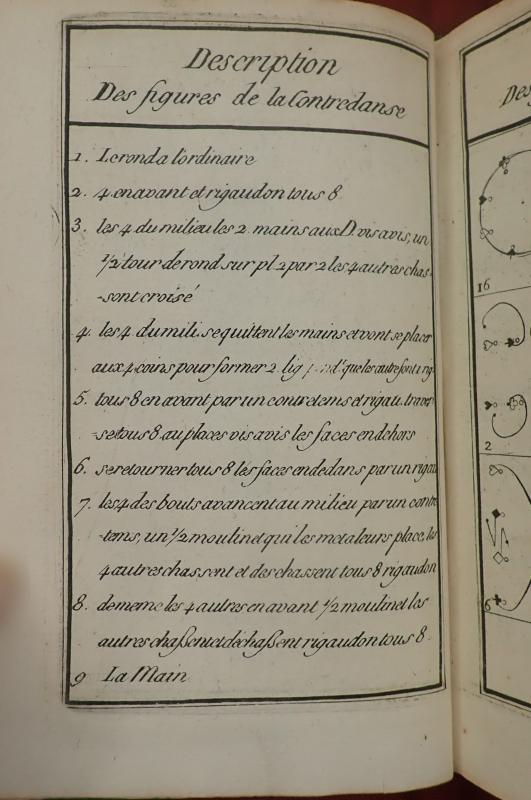 Description
Des figures de la Contredanse
1. Le rond a l'ordinaire
2. 4 en avant et rigaudon tous 8
3. les 4 du milieu les 2 mains aux D. vis avis, un
1/2 tour de rond sur pl 2 par 2 les 4 autres chas-
-sont croisé
4. les 4 du mili. se quittent les mains et vont se placer
aux 4 coins pour former 2. lig que les autres font rig
5. tous 8 en avant par un contretems et rigau. traver
-se tous 8. au places vis avis les faces en dehors
6. se retourner tous 8 les faces en dedans par un rigau
7. les 4 des bouts avancent au milieu par un contre
-tems, un 1/2 moulinet qui les met a leurs place, les
4 autres chassent et dechassent tous 8 rigaudon
8. de meme les 4 autres en avant 1/2 moulinet les
autres chassent et déchassent rigaudon tous 8.
9 La Main
Des
16
2
6